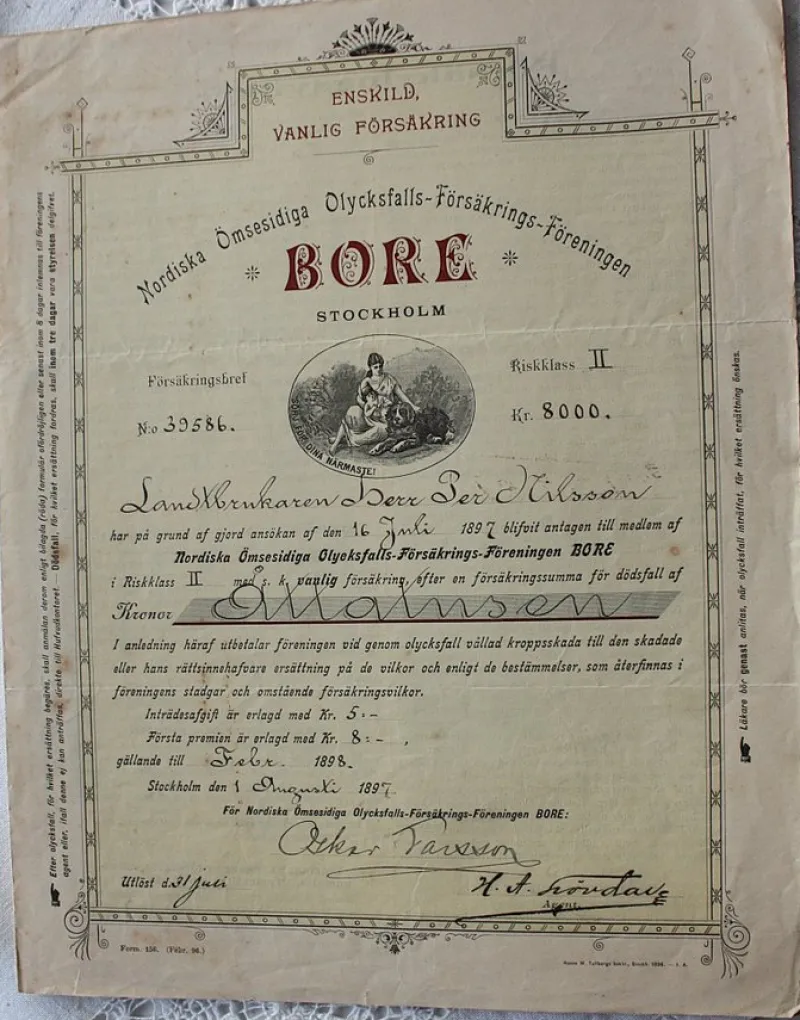 ENSKILD,
VANLIG FÖRSÄKRING
Nordiska Ömsesidiga Olycksfalls-Försäkrings-Föreningen
BORE
STOCKHOLM
Försäkringsbref
Riskklass II
N:o 39586.
Kr. 8000.
SÖRJ FÖR DINA NÄRMASTE!
Landtbrukaren Herr Per Nilsson
har på grund af gjord ansökan af den 16 Juli 1897 blifvit antagen till medlem af
Nordiska Ömsesidiga Olycksfalls-Försäkrings-Föreningen BORE
i Riskklass II med s. k. vanlig försäkring, efter en försäkringssumma för dödsfall af
Kronor Åttatusen
I anledning häraf utbetalar föreningen vid genom olycksfall vållad kroppsskada till den skadade
eller hans rättsinnehafvare ersättning på de vilkor och enligt de bestämmelser, som återfinnas i
föreningens stadgar och omstående försäkringsvilkor.
Inträdesafgift är erlagd med Kr. 5:-
Första premien är erlagd med Kr. 8:- ,
gällande till Febr. 1898.
Stockholm den 1 Augusti 1897
För Nordiska Ömsesidiga Olycksfalls-Försäkrings-Föreningen BORE:
Oskar
Utlöst d. 31 juli
H. A.
Agent.
Form. 158. (Febr. 96.)
Efter olycksfall, för hvilket ersättning begäres, skall anmälan derom enligt bilagda (röda) formulär ofördröjligen eller senast inom 8 dagar inlemnas till föreningens
agent eller, ifall denne ej kan anträffas, direkte till Hufvudkontoret. — Dödsfall, för hvilket ersättning fordras, skall inom tre dagar vara styrelsen delgifvet.
Läkare bör genast anlitas, när olycksfall inträffat, för hvilket ersättning önskas.